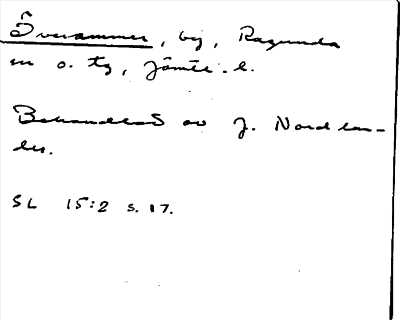 Överammer, by, Ragunda
sn o. tg, Jämtl. l.
Behandlad av J. Nordlan-
der.
SL 15:2 s. 17.